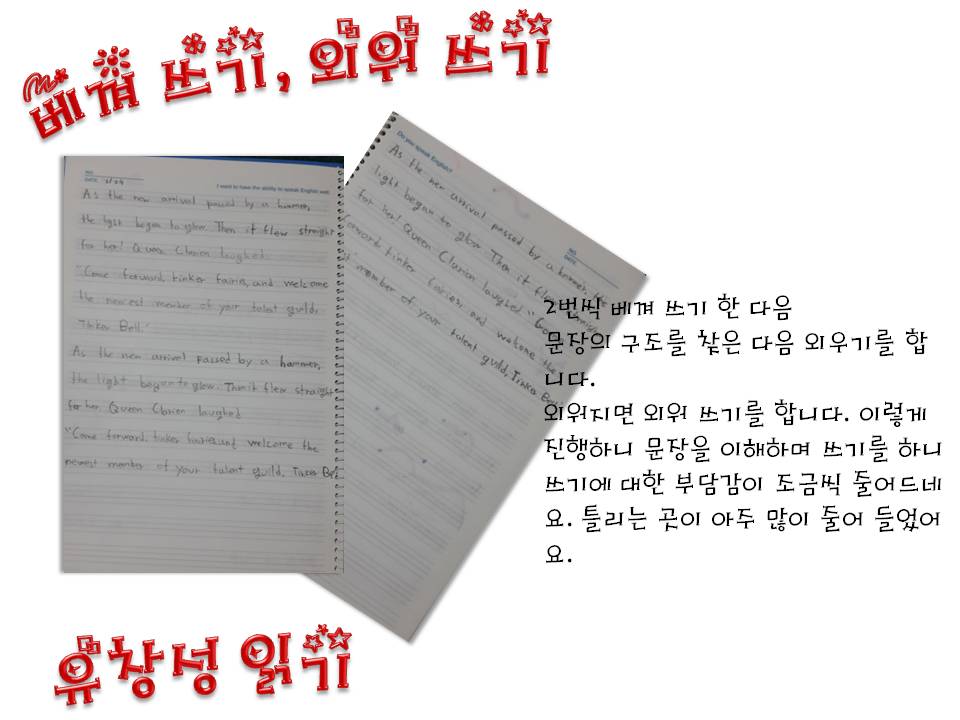 베껴 쓰기, 외워 쓰기
NO.
DATE.
I want to have the ability to speak English well.
As the new arrival passed by a hammer,
the light began to glow. Then it flew straight
for her! Queen Clarion laughed.
"Come forward, tinker fairies, and welcome
the newest member of your talent guild,
Tinker Bell."
As the new arrival passed by a hammer,
the light began to glow. Then it flew straight
for her. Queen Clarion laughed
"Come forward, tinker fairies, and welcome the
newest member of your talent guild, Tinker Bell
Do you speak English?
NO.
DATE.
As the new arrival passed by a hammer, the
light began to glow Then it flew straight
for her! Queen Clarion laughed "Come
forward tinker fairies, and welcome the
member of your talent guild, Tinker Bell
2번씩 베껴 쓰기 한 다음
문장의 구조를 찾은 다음 외우기를 합
니다.
외워지면 외워 쓰기를 합니다. 이렇게
진행하니 문장을 이해하며 쓰기를 하니
쓰기에 대한 부담감이 조금씩 줄어드네
요. 틀리는 곳이 아주 많이 줄어 들었어
요.
유창성 읽기